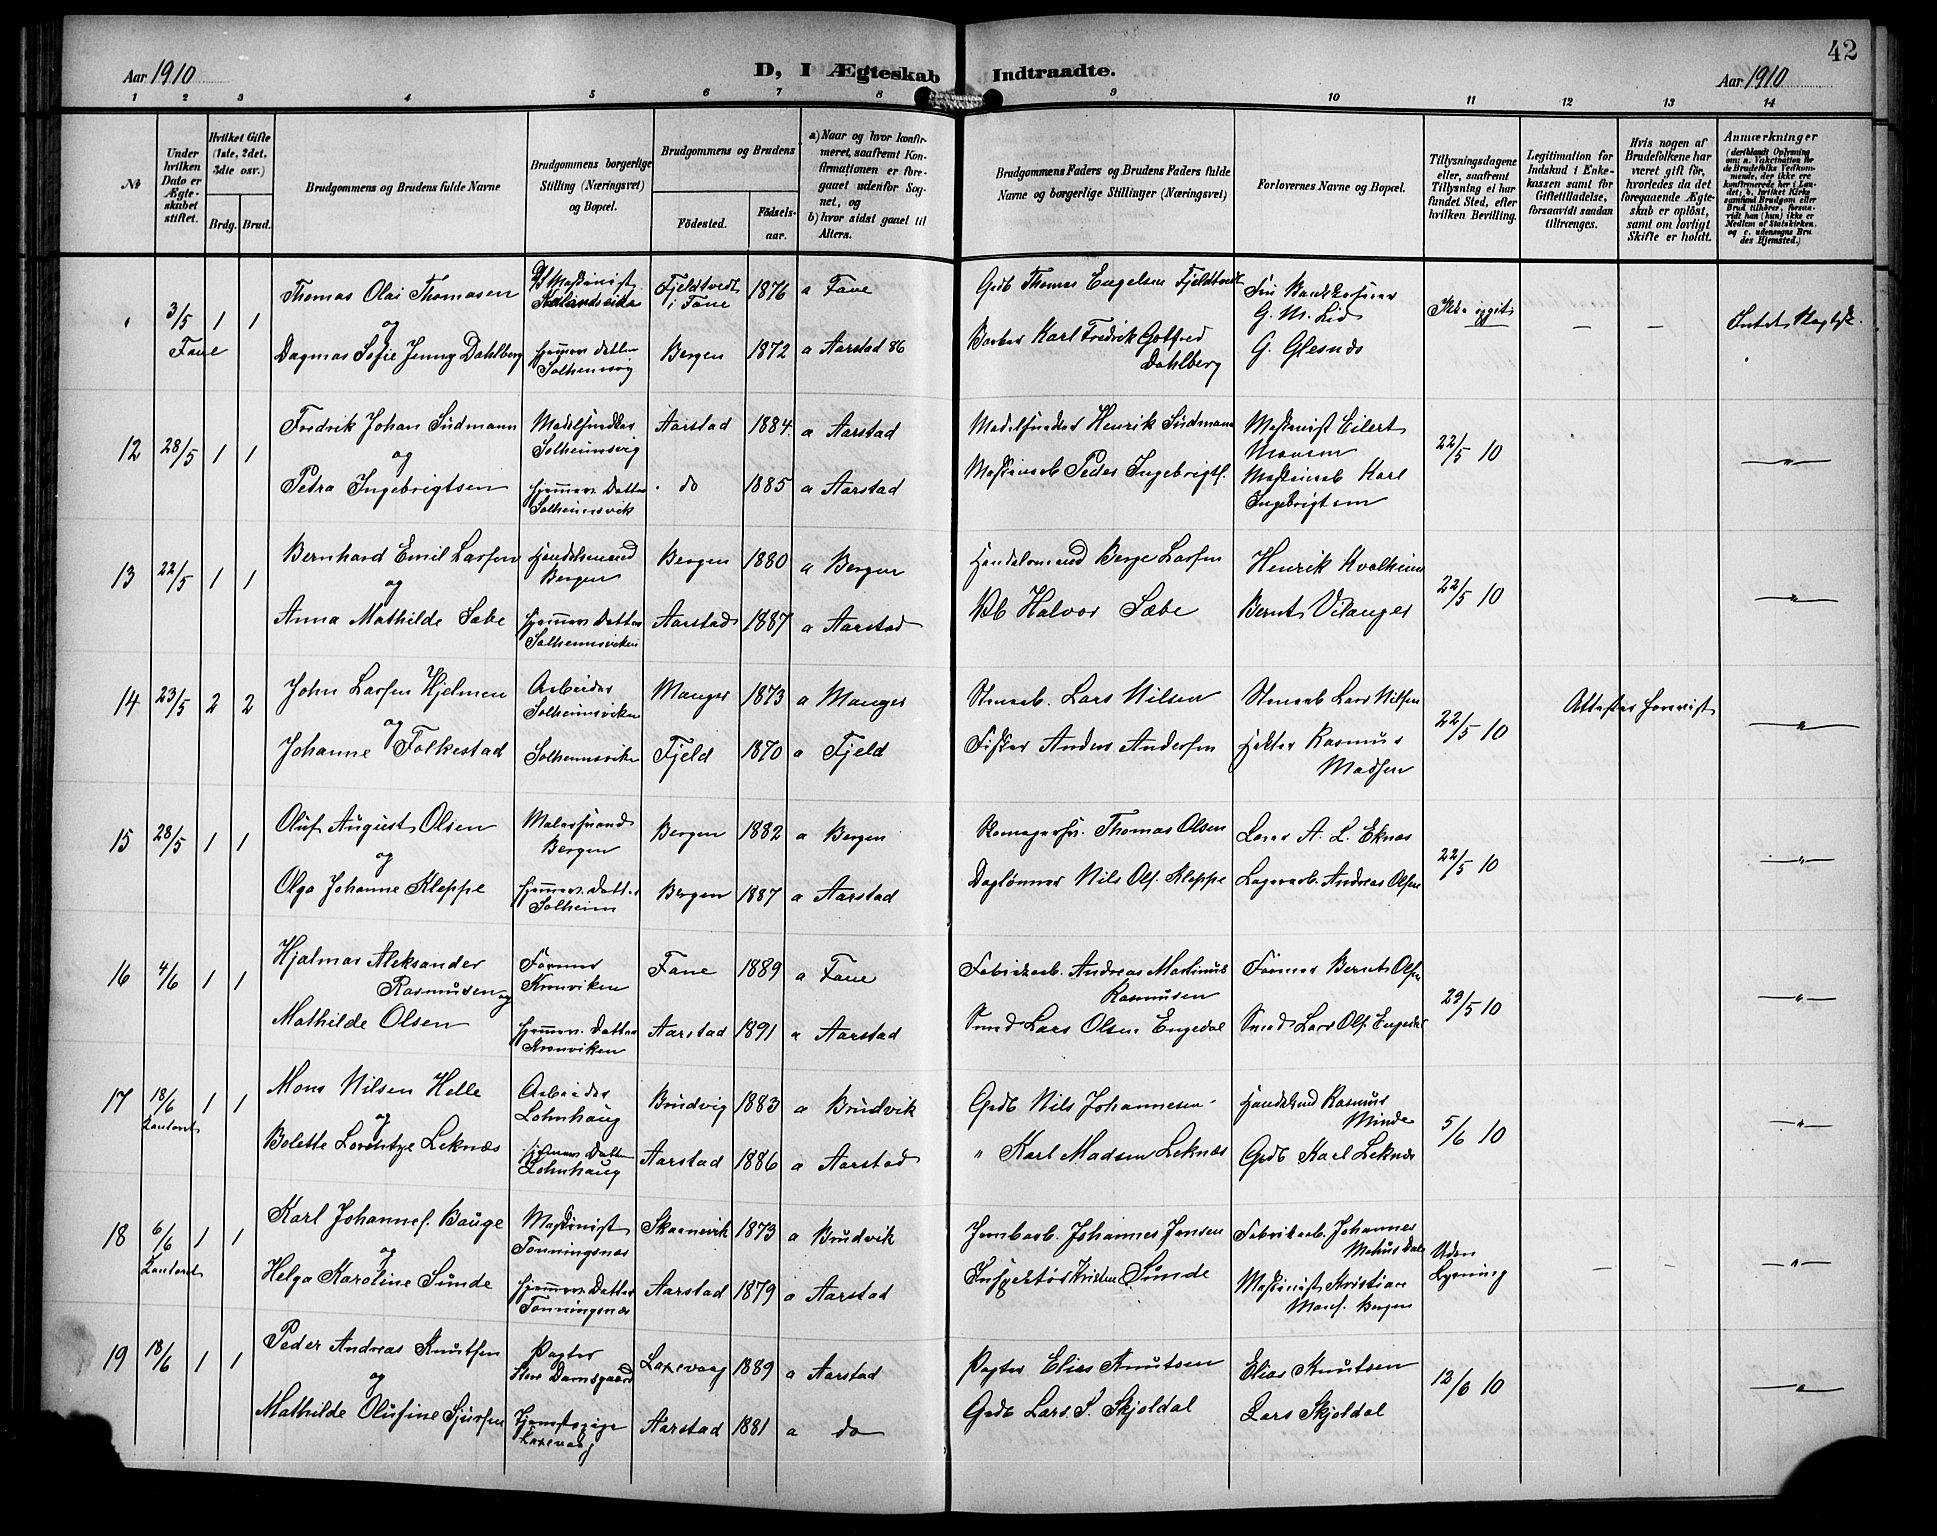 42
Aar 1910
D, I Ægteskab Indtraadte.
Aar 1910
1 2 3 4 5 6 7 8 9 10 11 12 13 14
№
Under hvilken Dato er Ægteskabet stiftet.
Hvilket Gifte (1ste, 2det, 3die osv.)
Brdg. Brud.
Brudgommens og Brudens fulde Navne
Brudgommens borgerlige Stilling (Næringsvei) og Bopæl.
Brudgommens og Brudens
Fødested.
Fødselsaar.
a) Naar og hvor konfirmeret, saafremt Konfirmationen er foregaaet udenfor Sognet, og
b) hvor sidst gaaet til Alters.
Brudgommens Faders og Brudens Faders fulde Navne og borgerlige Stillinger (Næringsvei)
Forlovernes Navne og Bopæl.
Tillysningsdagene eller, saafremt Tillysning ei har fundet Sted, efter hvilken Bevilling.
Legitimation for Indskud i Enkekassen samt for Giftetilladelse, forsaavidt saadan tiltrænges.
Hvis nogen af Brudefolkene har været gift før, hvorledes da det foregaaende Ægteskab er opløst, samt om lovligt Skifte er holdt.
Anmærkninger
(deriblandt Oplysning om: a. Vakcination for de Brudefolks Vedkommende, der ikke er konfirmerede her i Landet; b. hvilket Kirkesamfund Brudgom eller Brud tilhører, forsaavidt han (hun) ikke er Medlem af Statskirken. og c. udensogns Brudes Hjemsted.)
3/5 1 1 Thomas Olai Thomasen Maskinist Fjeldtvedt i Fane 1876 a Fane Grdb Thomas Engelsen Fjeldtvedt
Fane og G. M. Lid
Dagmar Sofie Jenny Dahlberg hjemmev. Datter Solheimsvig Bergen 1872 a Aarstad 86 Karl Fredrik Gotfred Dahlberg G. Glesnæs
12 28/5 1 1 Fredrik Johan Südmann Modelsnedker Solheimsvig Aarstad 1884 a Aarstad Modelsnedker Henrik Südmann Maskinist Eilert Monsen 22/5 10 — " —
og
Petra Ingebrigtsen hjemmev. Datter Solheimsvik do 1885 a Aarstad Maskinarb Peder Ingebrigts. Maskinarb Karl Ingebrigtsen
13 22/5 1 1 Bernhard Emil Larsen Handelsmand Bergen Bergen 1880 a Bergen Handelsmand Berge Larsen Henrik Kvalheim 22/5 10 — " —
og
Anna Mathilde Sæbe hjemmev. Datter Solheimsviken Aarstad 1887 a Aarstad Halvor Sæbe Bernt Vilanger
14 23/5 2 2 John Larsen Hjelmen Arbeider Solheimsviken Manger 1873 a Manger Stenarb. Lars Nilsen Stenarb Lars Nilsen 22/5 10 Attester forevist — " —
og
Johanne Folkestad Solheimsviken Fjeld 1870 a Fjeld Fisker Anders Andersen Rasmus Madsen
15 28/5 1 1 Oluf August Olsen Malersvend Bergen Bergen 1882 a Bergen Skomagersv. Thomas Olsen Lærer A. L. Eknæs 22/5 10 — " —
og
Olga Johanne Kleppe hjemmev. Datter Solheim Bergen 1887 a Aarstad Daglønner Nils Ols. Kleppe Lagerarb. Andreas Olsen
16 4/6 1 1 Hjalmar Aleksander Rasmusen og Former Kronviken Fane 1889 a Fane Fabrikarb. Andreas Martinus Rasmusen Former Bernt Olsen 29/5 10 — " —
Mathilde Olsen hjemmev. Datter Kronviken Aarstad 1891 a Aarstad Smed Lars Olsen Engedal Smed Lars Ols. Engedal
17 18/6 1 1 Mons Nilsen Helle Arbeider Lohnhaug Brudvig 1883 a Brudvik Grdb Nils Johannesen Handelsmd Rasmus Minde 5/6 10 — " —
Kontoret og
Bolette Lorentze Leknæs hjemmev. Datter Lohnhaug Aarstad 1886 a Aarstad " Karl Madsen Leknæs Grdb Karl Leknæs
18 6/6 1 1 Karl Johannes. Bauge Maskinist Tonningsnæs Skaanevik 1873 a Brudvik Jernbarb. Johannes Jensen Fabrikarb. Johannes Uden Lysning — — — " —
Kontoret og
Helga Karoline Sunde hjemmev. Datter Tonningsnæs Aarstad 1879 a Aarstad Inspektør Kristen Sunde Maskinist Kristian Bergen
19 18/6 1 1 Peder Andreas Knutsen Pagter Store Damsgaard Laxevaag 1889 a Aarstad Pagter Elias Knutsen Elias Knutsen 12/6 10 — " —
og
Mathilde Olufine Sjursen Laxevaag Aarstad 1881 a do Grdb Lars S. Skjoldal Lars Skjoldal